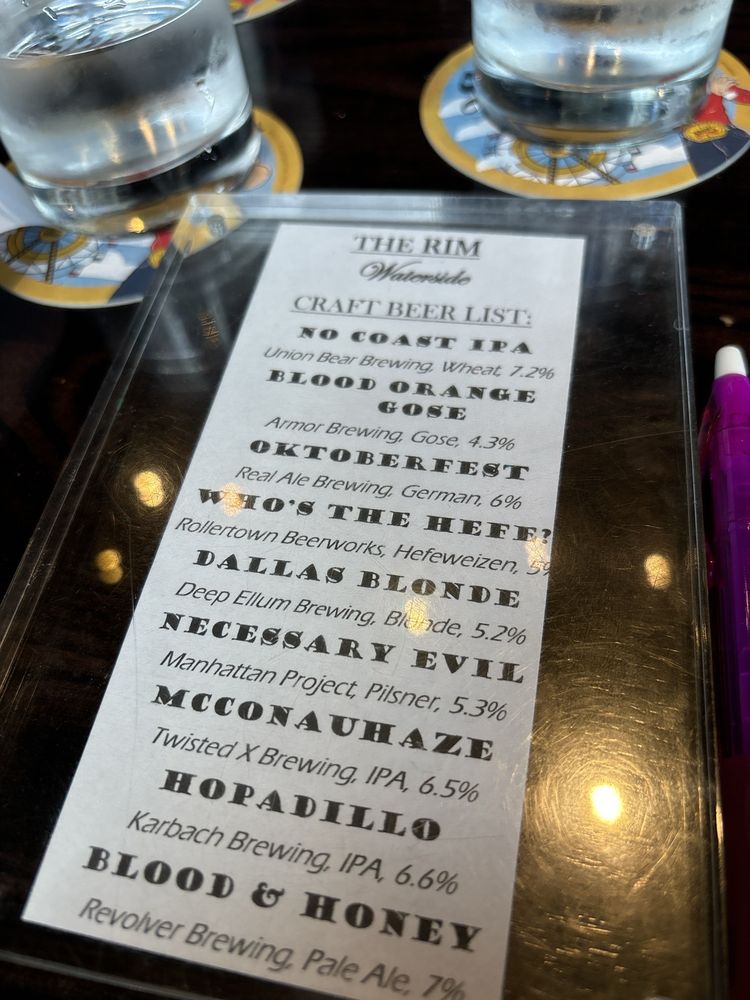 THE RIM
Waterside
CRAFT BEER LIST:
NO COAST IPA
Union Bear Brewing, Wheat, 7.2%
BLOOD ORANGE
GOSE
Armor Brewing, Gose, 4.3%
OKTOBERFEST
Real Ale Brewing, German, 6%
WHO'S THE HEFE?
Rollertown Beerworks, Hefeweizen, 5%
DALLAS BLONDE
Deep Ellum Brewing, Blonde, 5.2%
NECESSARY EVIL
Manhattan Project, Pilsner, 5.3%
MCCONAUHAZE
Twisted X Brewing, IPA, 6.5%
HOPADILLO
Karbach Brewing, IPA, 6.6%
BLOOD & HONEY
Revolver Brewing, Pale Ale, 7%